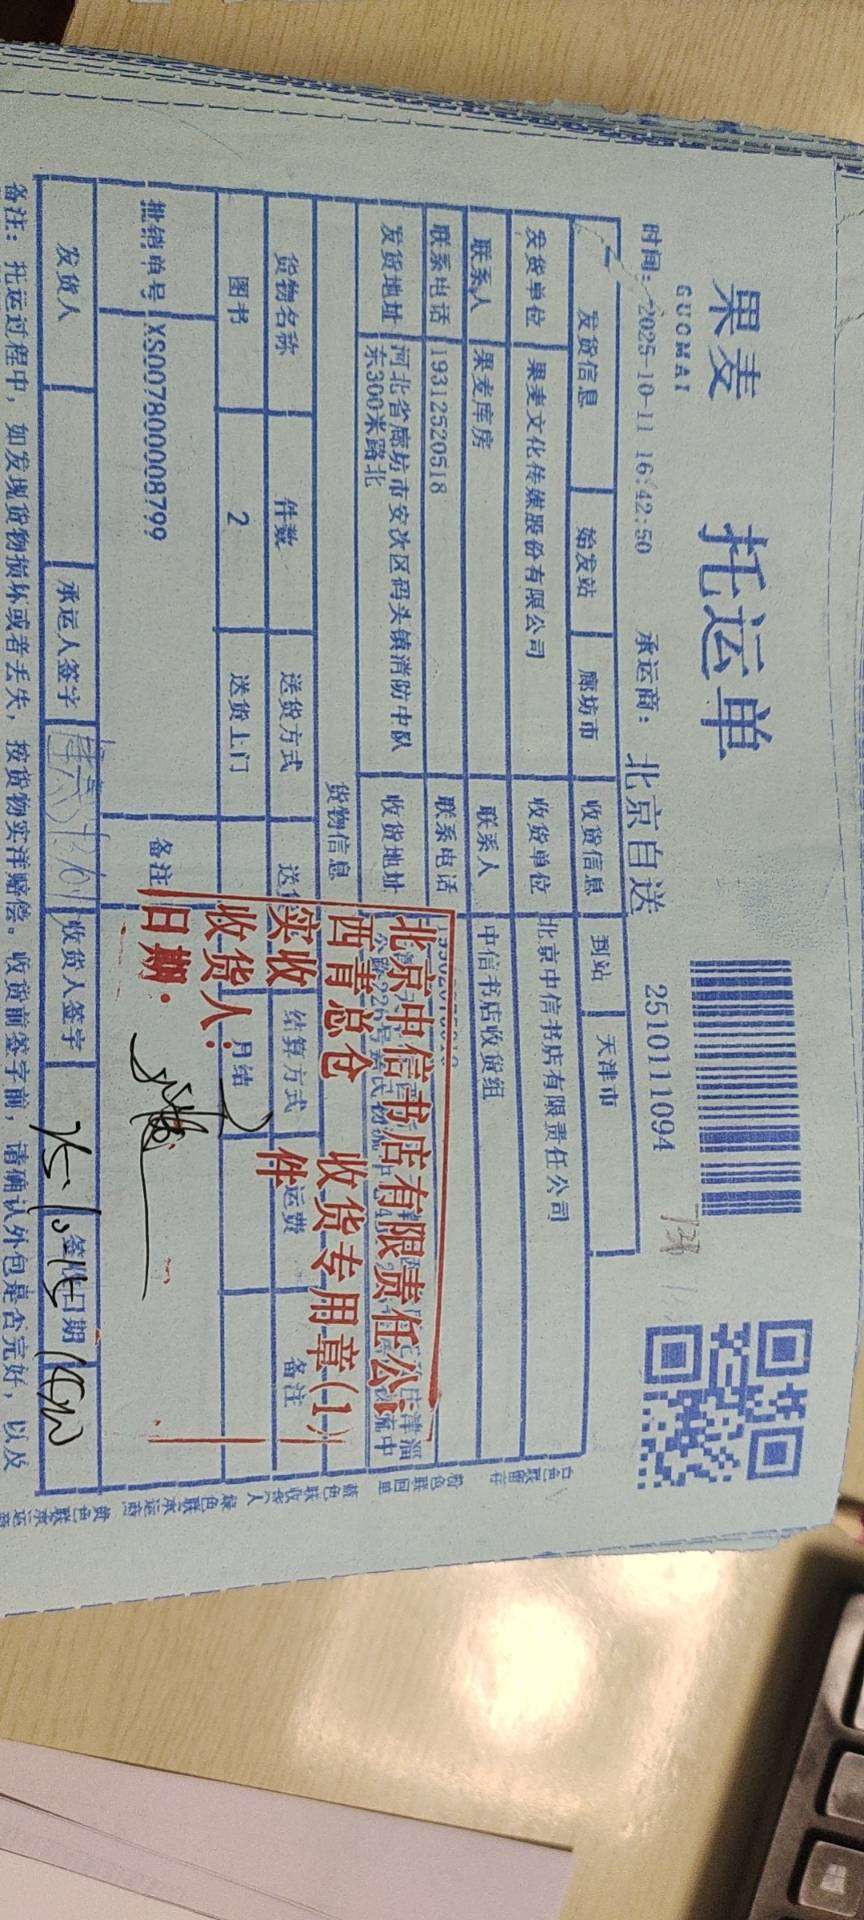 果麦
GUOMAI
托运单
时间: 2025-10-11 16:42:50 承运商: 北京自送 2510111094
发货信息 始发站 廊坊市 收货信息 到站 天津市
发货单位 果麦文化传媒股份有限公司 收货单位 北京中信书店有限责任公司
联系人 果麦库房 联系人 中信书店收货组
联系电话 19312520518 联系电话
发货地址 河北省廊坊市安次区码头镇消防中队东300米路北 收货地址
货物信息
货物名称 件数 送货方式 结算方式 运费 备注
图书 2 送货上门 月结
批销单号 XS007800008799 备注
发货人 承运人签字 收货人签字 签收日期
备注: 托运过程中, 如发现货物损坏或者丢失, 按货物实洋赔偿。收货前签字前, 请确认外包是否完好, 以及
北京中信书店有限责任公司
西青总仓 收货专用章(1)
实收 2 件
收货人:
日期
白色联留存
粉色联回单
蓝色联收货人
绿色联承运商
黄色联承运商